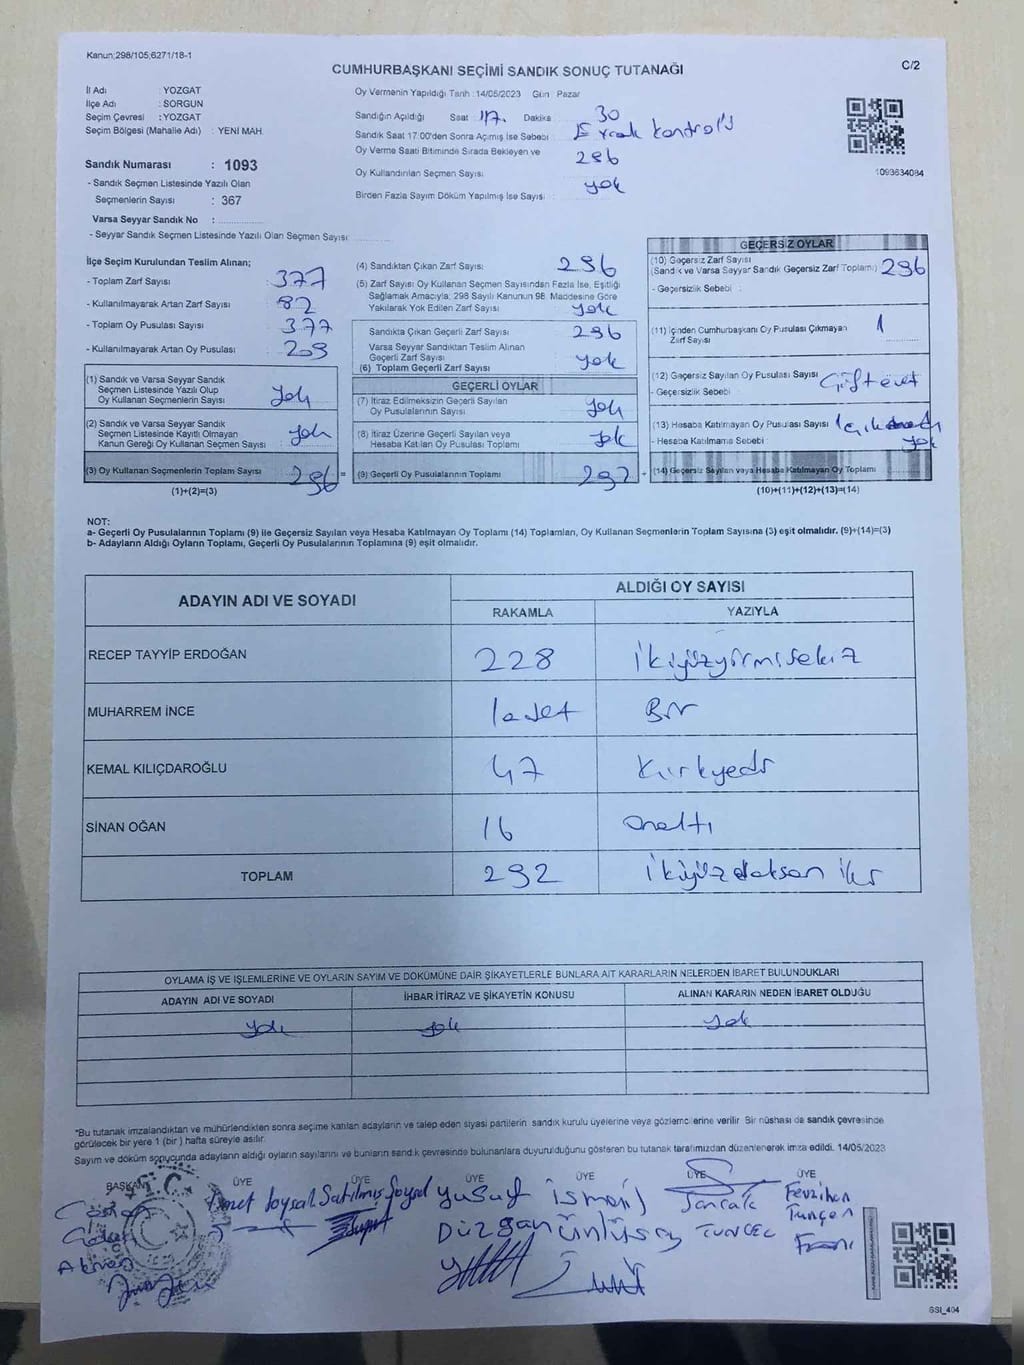 Kanun;298/105;6271/18-1
CUMHURBAŞKANI SEÇİMİ SANDIK SONUÇ TUTANAĞI
C/2
İl Adı : YOZGAT
İlçe Adı : SORGUN
Seçim Çevresi : YOZGAT
Seçim Bölgesi (Mahalle Adı) : YENİ MAH.
Sandık Numarası : 1093
- Sandık Seçmen Listesinde Yazılı Olan
Seçmenlerin Sayısı : 367
Varsa Seyyar Sandık No :
- Seyyar Sandık Seçmen Listesinde Yazılı Olan Seçmen Sayısı
Oy Vermenin Yapıldığı Tarih : 14/05/2023 Gün : Pazar
Sandığın Açıldığı Saat 17. Dakika 30
Sandık Saat 17:00'den Sonra Açılmış İse Sebebi : Evrak kontrolü
Oy Verme Saati Bitiminde Sırada Bekleyen ve
Oy Kullandırılan Seçmen Sayısı 296
Birden Fazla Sayım Döküm Yapılmış İse Sayısı : yok
1093634084
İlçe Seçim Kurulundan Teslim Alınan;
- Toplam Zarf Sayısı : 377
- Kullanılmayarak Artan Zarf Sayısı : 82
- Toplam Oy Pusulası Sayısı : 377
- Kullanılmayarak Artan Oy Pusulası : 209
(1) Sandık ve Varsa Seyyar Sandık
Seçmen Listesinde Yazılı Olup
Oy Kullanan Seçmenlerin Sayısı yok
(2) Sandık ve Varsa Seyyar Sandık
Seçmen Listesinde Kayıtlı Olmayan
Kanun Gereği Oy Kullanan Seçmen Sayısı yok
(3) Oy Kullanan Seçmenlerin Toplam Sayısı 296 =
(1)+(2)=(3)
(4) Sandıktan Çıkan Zarf Sayısı 296
(5) Zarf Sayısı Oy Kullanan Seçmen Sayısından Fazla İse, Eşitliği
Sağlamak Amacıyla, 298 Sayılı Kanunun 98. Maddesine Göre
Yakılarak Yok Edilen Zarf Sayısı yok
Sandıkta Çıkan Geçerli Zarf Sayısı 296
Varsa Seyyar Sandıktan Teslim Alınan
Geçerli Zarf Sayısı yok
(6) Toplam Geçerli Zarf Sayısı
GEÇERLİ OYLAR
(7) İtiraz Edilmeksizin Geçerli Sayılan
Oy Pusulalarının Sayısı yok
(8) İtiraz Üzerine Geçerli Sayılan veya
Hesaba Katılan Oy Pusulası Toplamı yok
(9) Geçerli Oy Pusulalarının Toplamı 292 +
GEÇERSİZ OYLAR
(10) Geçersiz Zarf Sayısı
(Sandık ve Varsa Seyyar Sandık Geçersiz Zarf Toplamı) 296
- Geçersizlik Sebebi :
(11) İçinden Cumhurbaşkanı Oy Pusulası Çıkmayan
Zarf Sayısı 1
(12) Geçersiz Sayılan Oy Pusulası Sayısı Çift evet
- Geçersizlik Sebebi
(13) Hesaba Katılmayan Oy Pusulası Sayısı
- Hesaba Katılmama Sebebi : yok
(14) Geçersiz Sayılan veya Hesaba Katılmayan Oy Toplamı
(10)+(11)+(12)+(13)=(14)
NOT:
a- Geçerli Oy Pusulalarının Toplamı (9) ile Geçersiz Sayılan veya Hesaba Katılmayan Oy Toplamı (14) Toplamları, Oy Kullanan Seçmenlerin Toplam Sayısına (3) eşit olmalıdır. (9)+(14)=(3)
b- Adayların Aldığı Oyların Toplamı, Geçerli Oy Pusulalarının Toplamına (9) eşit olmalıdır.
ADAYIN ADI VE SOYADI
ALDIĞI OY SAYISI
RAKAMLA YAZIYLA
RECEP TAYYİP ERDOĞAN 228 ikiyüzyirmisekiz
MUHARREM İNCE 1 adet Bir
KEMAL KILIÇDAROĞLU 47 kırkyedi
SİNAN OĞAN 16 onaltı
TOPLAM 292 ikiyüzdoksan iki
OYLAMA İŞ VE İŞLEMLERİNE VE OYLARIN SAYIM VE DÖKÜMÜNE DAİR ŞİKAYETLERLE BUNLARA AİT KARARLARIN NELERDEN İBARET BULUNDUKLARI
ADAYIN ADI VE SOYADI İHBAR İTİRAZ VE ŞİKAYETİN KONUSU ALINAN KARARIN NEDEN İBARET OLDUĞU
yok yok yok
*Bu tutanak imzalandıktan ve mühürlendikten sonra seçime katılan adayların ve talep eden siyasi partilerin sandık kurulu üyelerine veya gözlemcilerine verilir. Bir nüshası da sandık çevresinde
görülecek bir yere 1 (bir) hafta süreyle asılır.
Sayım ve döküm sonucunda adayların aldığı oyların sayılarını ve bunların sandık çevresinde bulunanlara duyurulduğunu gösteren bu tutanak tarafımızdan düzenlenerek imza edildi. 14/05/2023
BAŞKAN ÜYE ÜYE ÜYE ÜYE ÜYE ÜYE
Soysal Satılmış Soysal Yusuf Düzgan İsmail Ünlüsoy TUNCEL
GSI_404